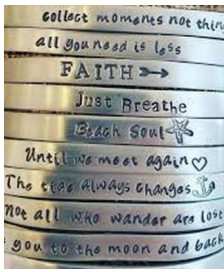 collect moments not thin
all you need is less
FAITH
Just Breathe
Beach Soul
Until we meet again
The tide always changes
not all who wander are lost
you to the moon and back